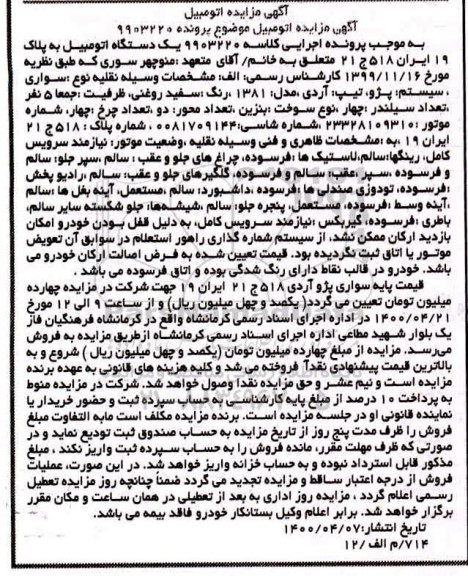 آگهی مزایده اتومبیل
آگهی مزایده اتومبیل موضوع پرونده ۹۹۰۳۲۲۰
به موجب پرونده اجرایی کلاسه ۹۹۰۳۲۲۰ یک دستگاه اتومبیل به پلاک
۱۹ ایران ۵۱۸ ج ۲۱ متعلق به خانم/ آقای متعهد :منوچهر سوری که طبق نظریه
مورخ ۱۳۹۹/۱۱/۱۶ کارشناس رسمی: الف: مشخصات وسیله نقلیه نوع :سواری
، سیستم: پژو، تیپ: آردی ،مدل: ۱۳۸۱ ،رنگ :سفید روغنی، ظرفیت :جمعا ۵ نفر
،تعداد سیلندر :چهار ،نوع سوخت :بنزین ،تعداد محور: دو ،تعداد چرخ :چهار، شماره
موتور :۲۳۳۲۸۱۰۹۳۱۰ ،شماره شاسی:۰۰۸۱۷۰۹۱۴۴ ، شماره پلاک : ۵۱۸ ج ۲۱
ایران ۱۹ ،به :مشخصات ظاهری و فنی وسیله نقلیه ،وضعیت موتور: نیازمند سرویس
کامل، رینگها:سالم،لاستیک ها :فرسوده، چراغ های جلو و عقب : سالم ،سپر جلو: سالم
و فرسوده ،سپر عقب: سالم و فرسوده، گلگیرهای جلو و عقب: سالم، رادیو پخش
:فرسوده، تودوزی صندلی ها :فرسوده ،داشبورد: سالم ،مستعمل، آینه بغل ها :سالم
،آینه وسط :فرسوده، مستعمل، پنجره جلو: سالم، شیشه‌ها: جلو شکسته سایر سالم،
باطری :فرسوده، گیربکس :نیازمند سرویس کامل، به دلیل قفل بودن خودرو امکان
بازدید ارکان ممکن نشد، از سیستم شماره گذاری راهور استعلام در سوابق آن تعویض
موتور یا اتاق ثبت نگردیده بود. قیمت تعیین شده به فرض اصالت ارکان خودرو می
باشد. خودرو در قالب نقاط دارای رنگ شدگی بوده و اتاق فرسوده می باشد .
قیمت پایه سواری پژو آردی ۵۱۸ ج ۲۱ ایران ۱۹ جهت شرکت در مزایده چهارده
میلیون تومان تعیین می گردد( یکصد و چهل میلیون ریال) و از ساعت ۹ الی ۱۲ مورخ
۱۴۰۰/۰۴/۲۱ در اداره اجرای اسناد رسمی کرمانشاه واقع در کرمانشاه فرهنگیان فاز
یک بلوار شهید مطاعی اداره اجرای اسناد رسمی کرمانشاه ازطریق مزایده به فروش
می‌رسد. مزایده از مبلغ چهارده میلیون تومان (یکصد و چهل میلیون ریال ) شروع و به
بالاترین قیمت پیشنهادی نقدا فروخته می شد و کلیه هزینه های قانونی به عهده برنده
مزایده است و نیم عشر و حق مزایده نقدا وصول خواهد شد. شرکت در مزایده منوط
به پرداخت ۱۰ درصد از مبلغ پایه کارشناسی به حساب سپرده ثبت و حضور خریدار یا
نماینده قانونی او در جلسه مزایده است. برنده مزایده مکلف است مابه التفاوت مبلغ
فروش را ظرف مدت پنج روز از تاریخ مزایده به حساب صندوق ثبت تودیع نماید و در
صورتی که ظرف مهلت مقرر، مانده فروش را به حساب سپرده ثبت واریز نکند ، مبلغ
مذکور قابل استرداد نبوده و به حساب خزانه واریز خواهد شد. در این صورت، عملیات
فروش از درجه اعتبار ساقط و مزایده تجدید می گردد ضمناً چنانچه روز مزایده تعطیل
رسمی اعلام گردد ، مزایده روز اداری به بعد از تعطیلی در همان ساعت و مکان مقرر
برگزار خواهد شد. برابر اعلام وکیل بستانکار خودرو فاقد بیمه می باشد.
تاریخ انتشار:۱۴۰۰/۰۴/۰۷
۷۱۴/م الف /۱۲